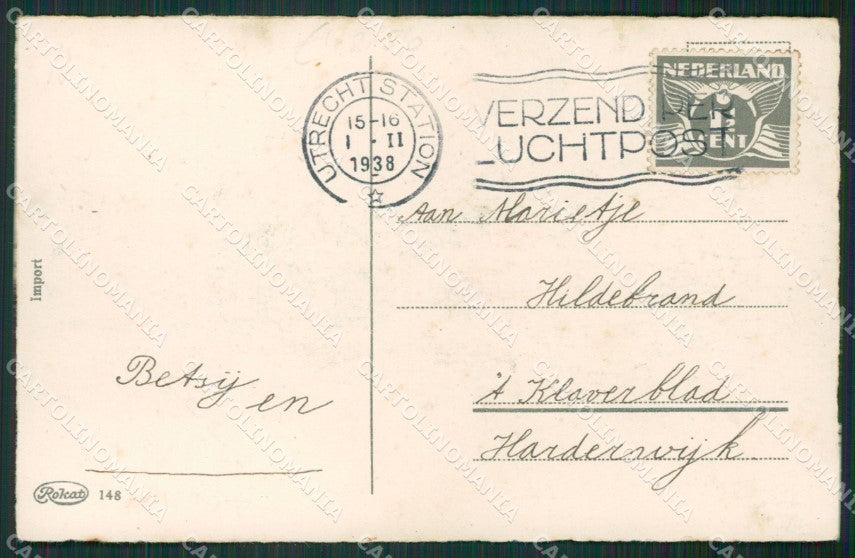 UTRECHT STATION
15-16
1 · II
1938
VERZEND PER
LUCHTPOST
NEDERLAND
CENT
Aan Marietje
Hildebrand
't Klaverblad
Harderwijk.
Import
Betsij en
Rokat 148
CARTOLINOMANIA